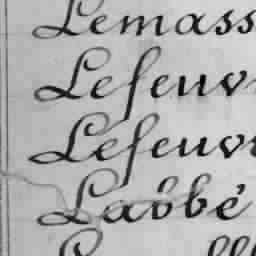 Lemass
Lefeuv
Lefeuvr
Labbé